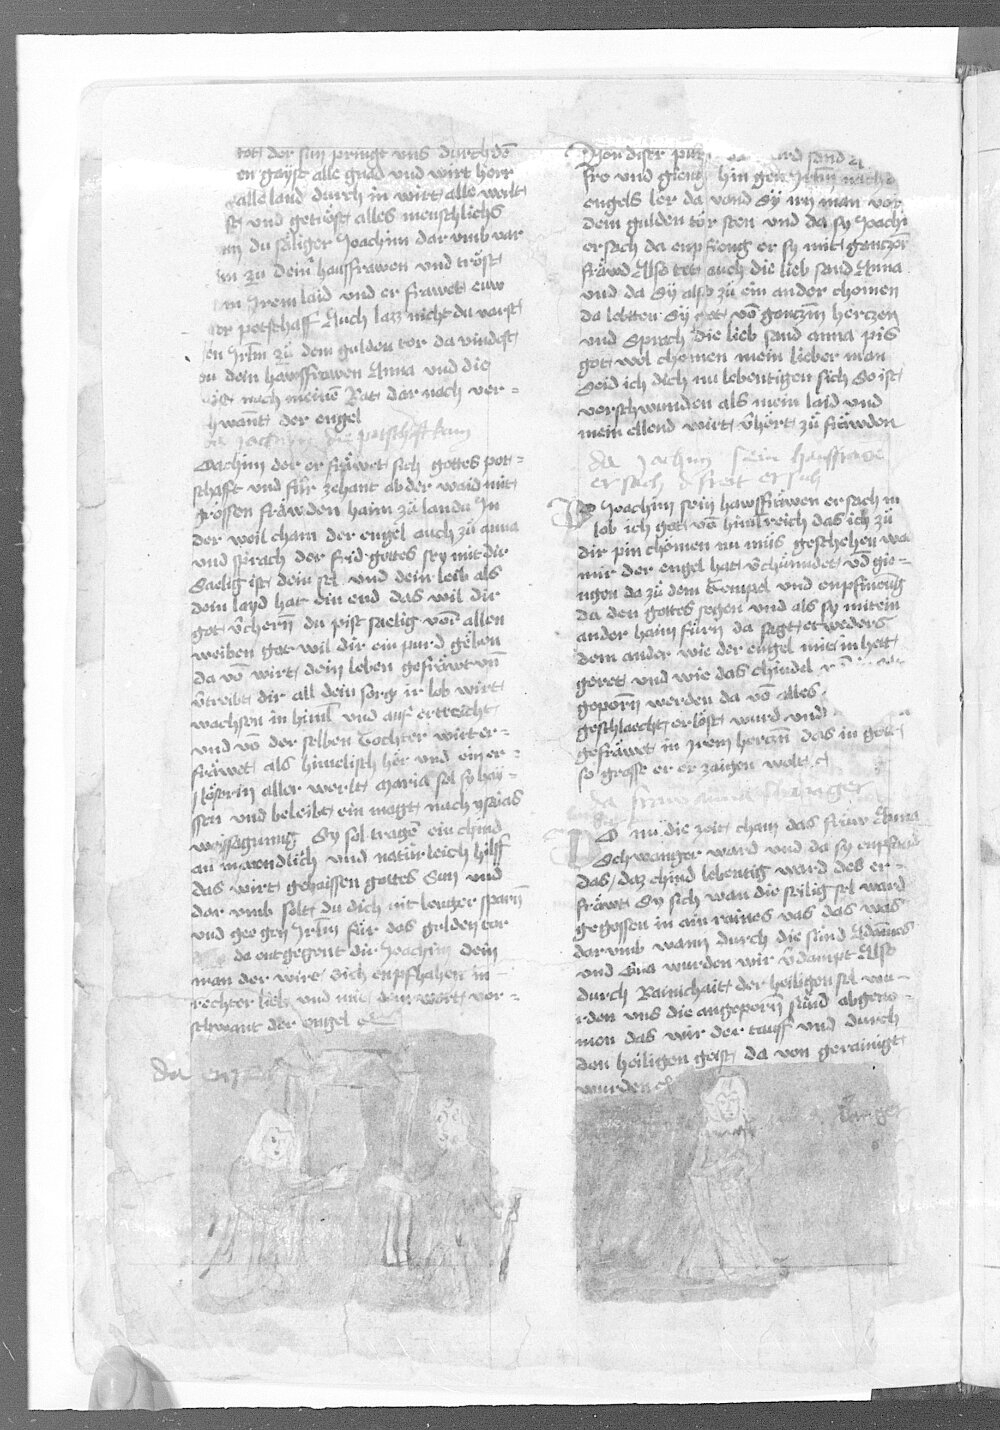 tot der sun pringt uns durch dē
en gayst alle gnad und wirt herr
alle land durch in wirt alle welt
st und getröst alles menschlichs
du säliger Joachim dar umb var
zu deiner hausfrawen und tröst
Irem laid und er frawet euw
potschaff Auch lazz nicht du varst
en Jrlm zu dem gulden tor da vindest
dein hawsfrawen Anna und die
nach meinē Rat dar nach ver=
hwant der engel
da Jochim die potschafft kam
Joachim der er fräwet sich gottes pot=
schafft und fur zehant ab der waid mit
grössen fräwden haim zu landn In
der weil cham der engel auch zu anna
und sprach der frid gottes sey mit dir
Saelig ist dein sel und dein leib als
dein layd hat ein end das wil dir
got v̄chern du pist saelig vor allen
weiben got wil dir ein purd geben
da vō wirt dein leben gefräwt vn̄
v̄treibt dir all dein sorg ir lob wirt
wachsen in himl und auf ertreicht
und vō der selben Tochter wirt er=
fräwet als himelisch hër und ein er=
löserin aller werlt Maria sol sy hay=
ssen und beleibt ein magt nach ysaias
weissagung Sy sol tragē ein chind
an mandlich und natürleich hilff
das wirt gehaissen gottes Sun und
dar umb solt du dich nit lenger sparn
und gee gen Jrlm für das gulden tor
da entgegent dir Joachim dein
man der wirt dich enpfahen in
rechter lieb und mit dem wort ver=
schwant der engel
da
Von diser
fro und gieng hin gen Jrlm nach
engels ler da vand Sy irn man vor
dem gulden tor sten und da sy Joachi
ersach da enpfieng er sy mit gantzer
fräwd Also tet auch die lieb sand Anna
und da Sy also zu ein ander chomen
da lobtten Sy got vō gantzm hertzen
und Sprach die lieb sand anna pis
got wol chomen mein lieber man
Seid ich dich nu lebentigen sich So ist
verschwunden als mein laid und
mein ellend wirt v̄chört zu fräwden
da Jochim sein hausfrawe
ersach
Do Joachim sein hawsfräwen ersach nu
lob ich got vō himlreich das ich zu
dir pin chomen nu müs geschehen wa
mir der engel hat v̄chündet v̄d gie=
ngen da zu dem Tempel und enpfiengn
da den gottes segen und als sy mit ein
ander haim furn da sagt etweders
dem ander wie der engel mit in hett
geret und wie das chindel
geporn werden da vō alles
geschlaecht erlöst wurd und
gefräwet in Irem hertzn das in got
so grosse er er zaigen wolt
da
Do nu die zeit cham das fraw Anna
Schwanger ward und da sy enpfand
das daz chind lebentig ward des er=
fräwt Sy sich wan die sälig sel ward
gegossen in ain raines vas das was
darumb wann durch die sünd Adames
und Eva wurden wir v̄dampt Also
durch Rainichait der heiligen sel wu=
rden uns die angeporn sünd abgeno=
men das wir der tauff und durch
den heiligen geist da von gerainigt
wurden